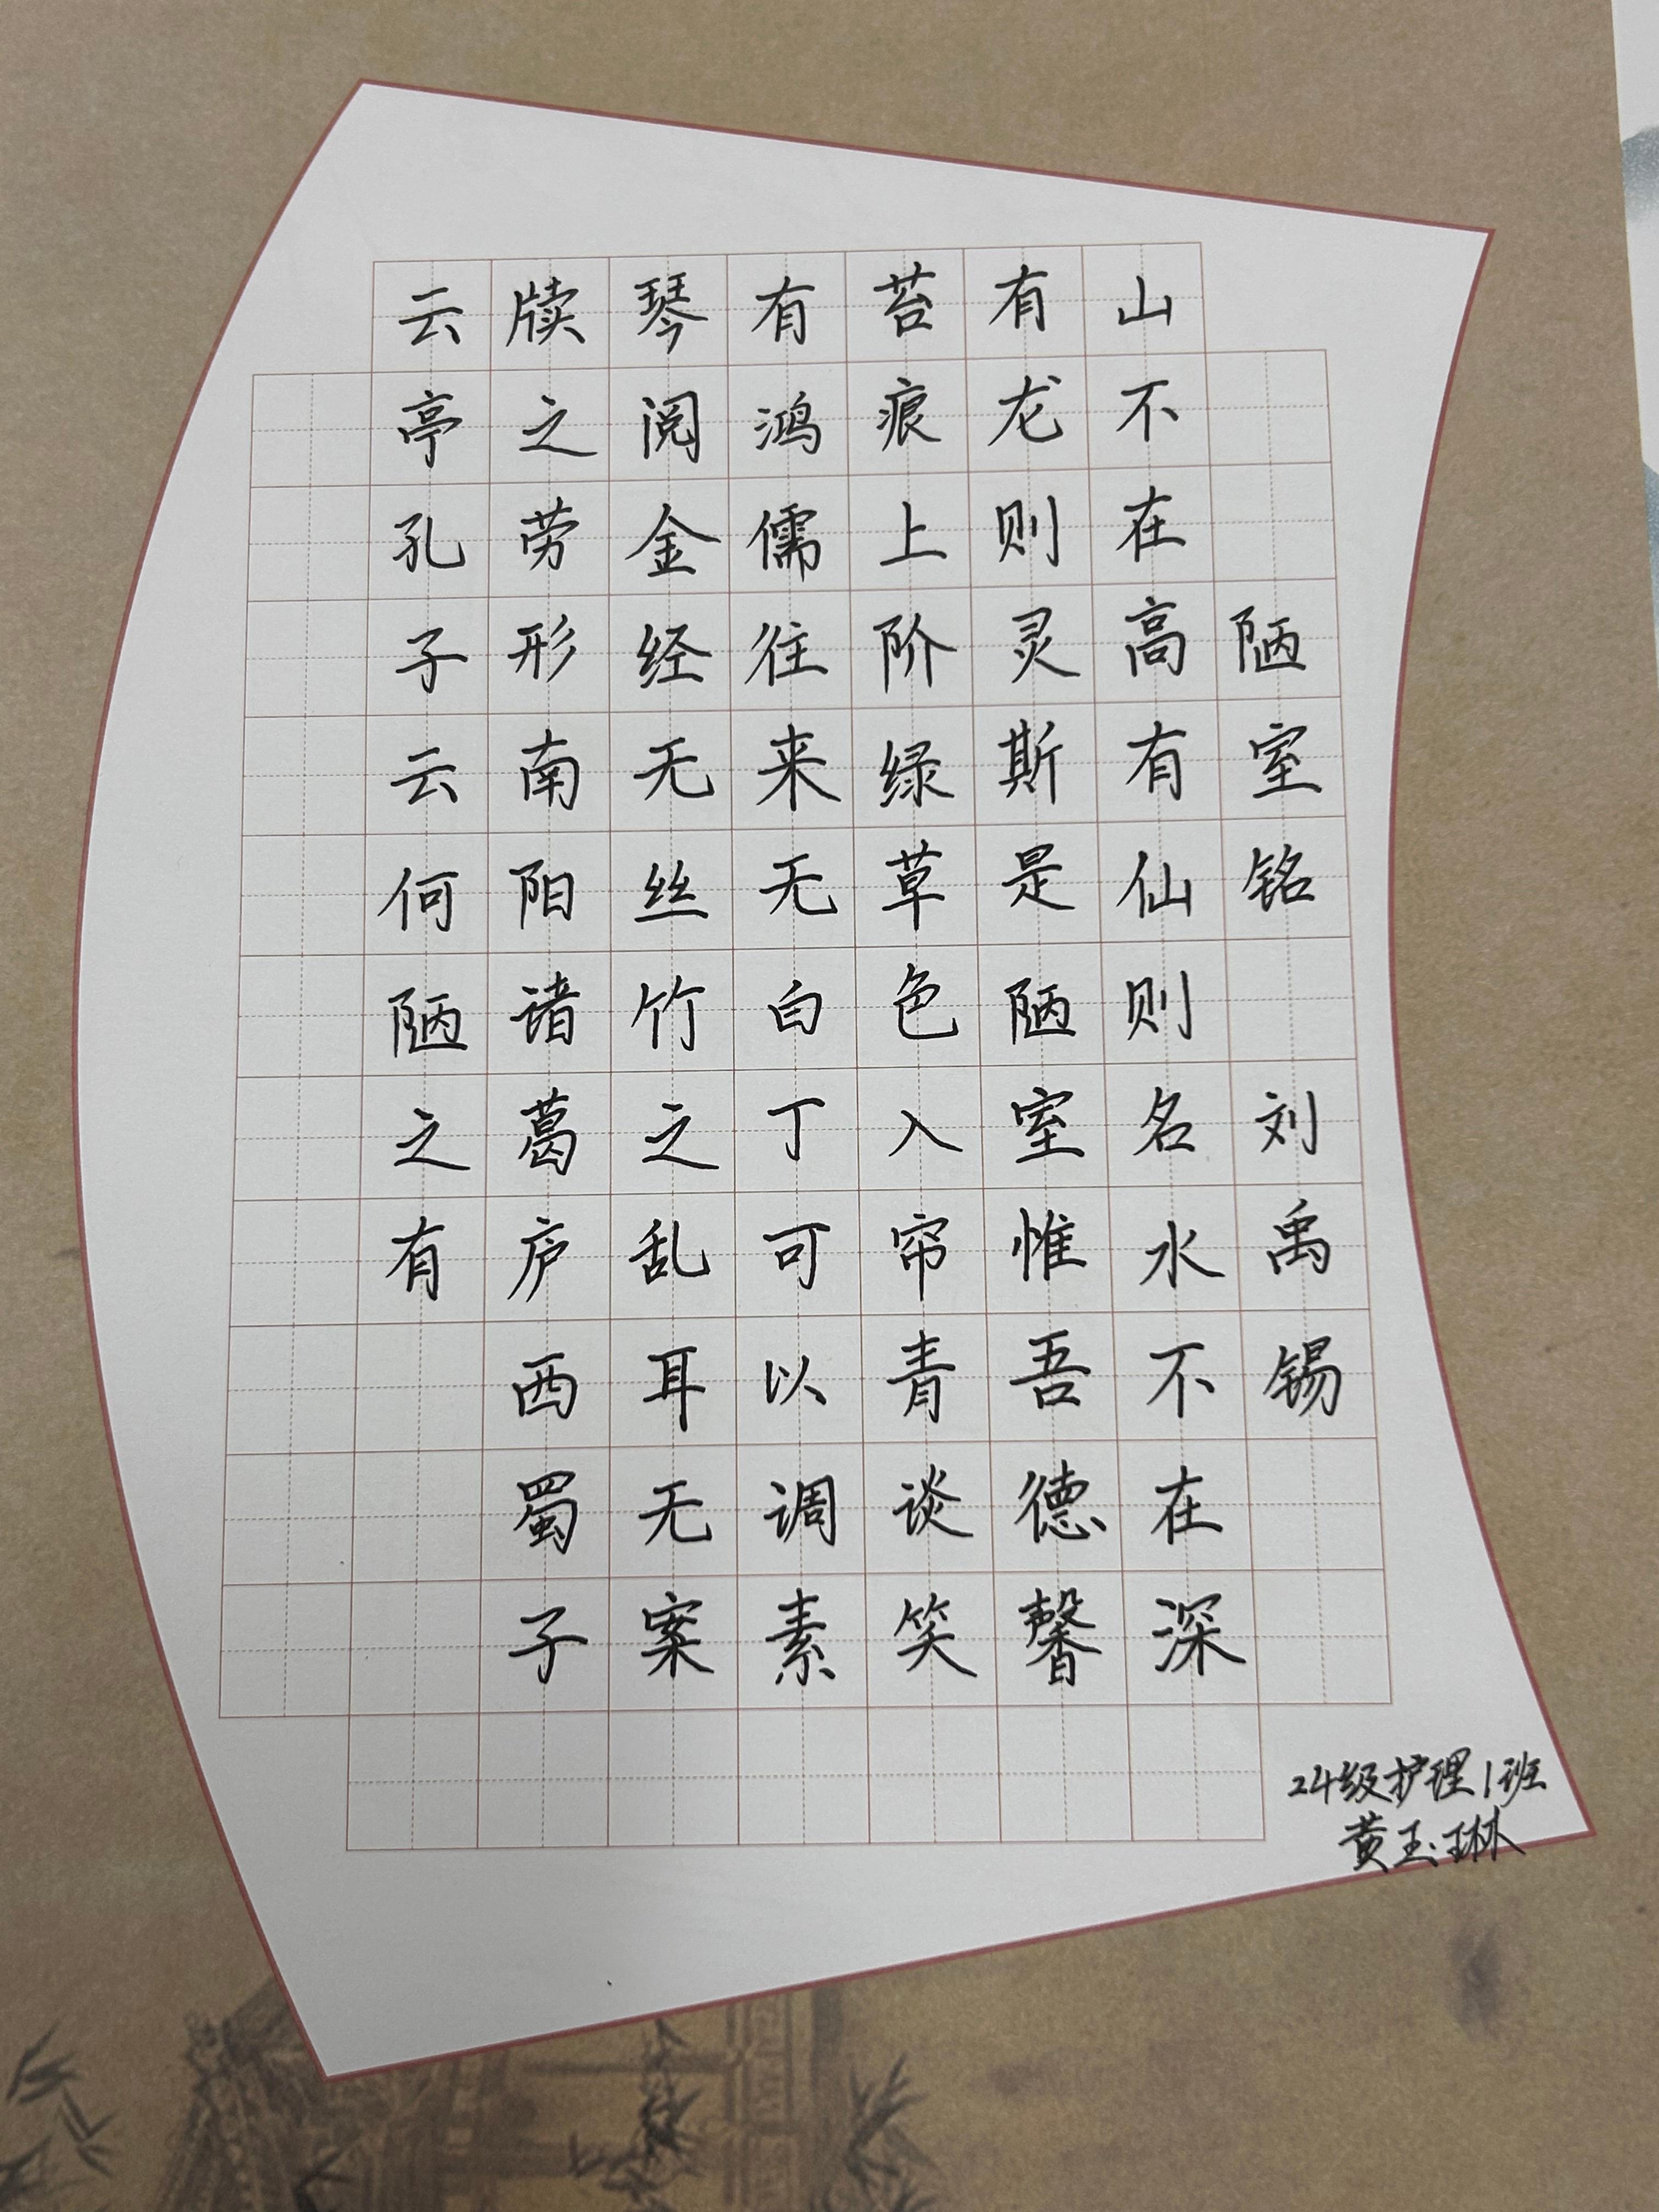 陋室铭 刘禹锡
山不在高有仙则名水不在深
有龙则灵斯是陋室惟吾德馨
苔痕上阶绿草色入帘青谈笑
有鸿儒往来无白丁可以调素
琴阅金经无丝竹之乱耳无案
牍之劳形南阳诸葛庐西蜀子
云亭孔子云何陋之有
24级护理1班
黄玉琳